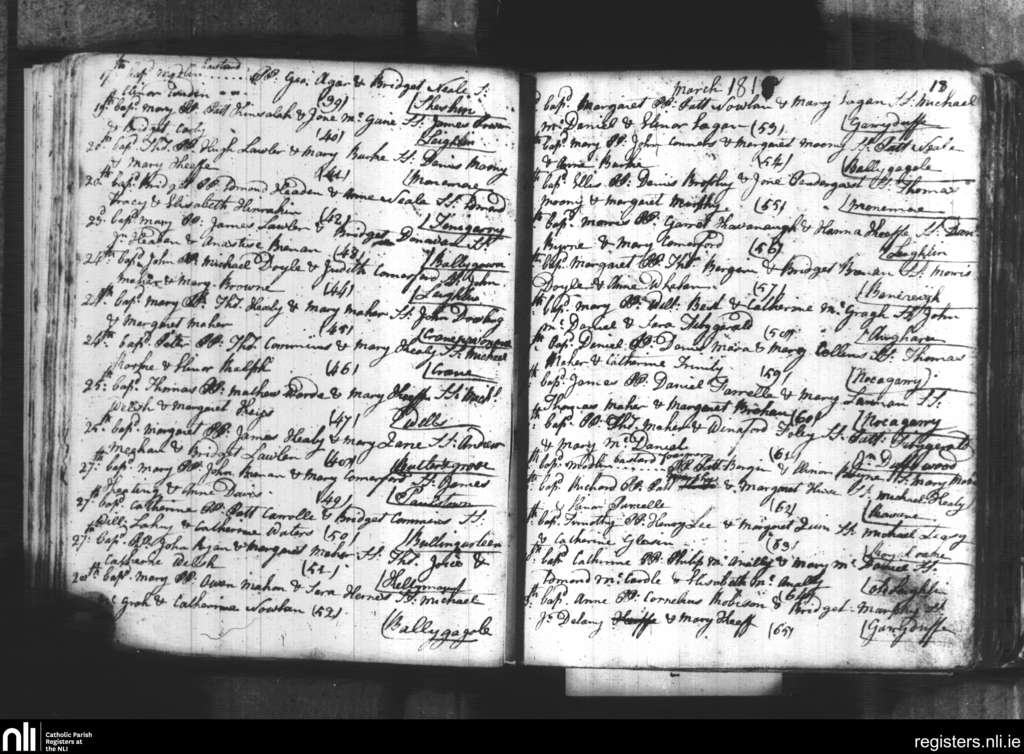 17th bapd Bastard PP. Geo. Agar & Bridget Neale S:
Elinor (39) Sheskin
19th bapd Mary PP Patt Kinsalah & Jone Mc Gane Ss. James Brown
& Bridget Carty (40) (Leighlin
20th bapd Thos. PP Hugh Lawler & Mary Burke Ss. Denis Moony
& Mary Keeffe (41) (Monemoe
20th bapd Bridget PP. Edmond Headen & Anne Neale Ss. Edmond
Tracy & Elisabeth Hanrahin (42) (Tomgarry
23d bapd Mary PP. James Lawler & Bridget Donavan Ss.
Jn. Headen & Anastise Brenan (43) (Ballygown
24th bapd John PP. Michael Doyle & Judith Comerford Ss. John
Maher & Mary Browne (44) (Leighlin
24th bapd Mary PP. Thos. Healy & Mary Maher Ss. John Dowling
& Margaret Maher (45)
24th bapd Peter PP. Thos. Commins & Mary Healy Ss. Michael
& Elinor Ralph (46) (Crane
25: bapd Thomas PP. Mathew & Mary Keeffe Ss. Michl
Welsh & Margaret (47) (Wells
25th bapd Margaret PP. James Healy & Mary Lane Ss. Andrew
Meighan & Bridget Lawler (48) (Butlersgrove
27: bapd Mary PP. John Brenan & Mary Comerford Ss. James
Keating & Anne Davis (49)
27th bapd Catherine PP. Patt Carrolle & Bridget Commins Ss:
Will: Lahy & Catherine Waters (50) (Ballingorleen
27: bapd PP. John Ryan & Margaret Maher Ss. Thos. Joice &
Catherine Welsh (51) (Kellymany
28th bapd Mary PP. Owen Mahon & Sara Ss. Michael
Mc Grah & Catherine Nowlan (52)
(Ballygagole
March 181 18
bapd Margaret PP. Patt Nowlan & Mary Eagan Ss. Michael
Mc Daniel & Elinor Eagan (53) (Garryduffe
bapd Mary PP. John Conners & Margaret Moony Ss. Patt Neale
& Anne Burke (54) (Ballygagole
bapd Elles PP. Denis Brophy & Jone Pendergast Ss. Thomas
Moony & Margaret Murphy (55) (Monemoe
bapd Morris PP. Garret Kavanaugh & Hanna Keeffe Ss. Dan
Byrne & Mary Comerford (56) (Leighlin
bapd Margaret PP. Thos. Bergan & Bridget Brenan Ss. Morris
Doyle & Anne Whelan (57) (Banereigh
bapd Mary PP. Walt: Best & Catherine Mc Gragh Ss. John
Mc Daniel & Sara Fitzgerald (58) (Augharue
bapd Daniel PP. Denis Mara & Mary Collins Ss. Thomas
Maher & Catherine Trinity (59) (Nocagarry)
bapd James PP. Daniel Farrelle & Mary Lannan Ss.
Thomas Maher & Margaret Brohan (60) (Nocagarry
bapd PP. Thos. Maher & Winaford Foley Ss. Patt Fitzgerald
& Mary Mc Daniel (61)
bapd Bastard PP. Patt Bergen & Elinor Byrne Ss. Mary
bapd Richard PP. Patt & Margaret Ss. Michael Healy
& Elinor Purcelle (62)
bapd Timothy PP. Henry Lee & Margaret Ss. Michael Leary
& Catherine (63)
bapd Catherine PP. Philip Mc Anally & Mary Mc Daniel Ss.
Edmond Mc Cardle & Elisabeth Mc Anally (64) (Oldleighlin
bapd Anne PP. Cornelius Robison & Bridget Murphy Ss.
Js. Delany & Mary Keeff (65) (Garryduffe
nli
Catholic Parish
Registers at
the NLI
registers.nli.ie